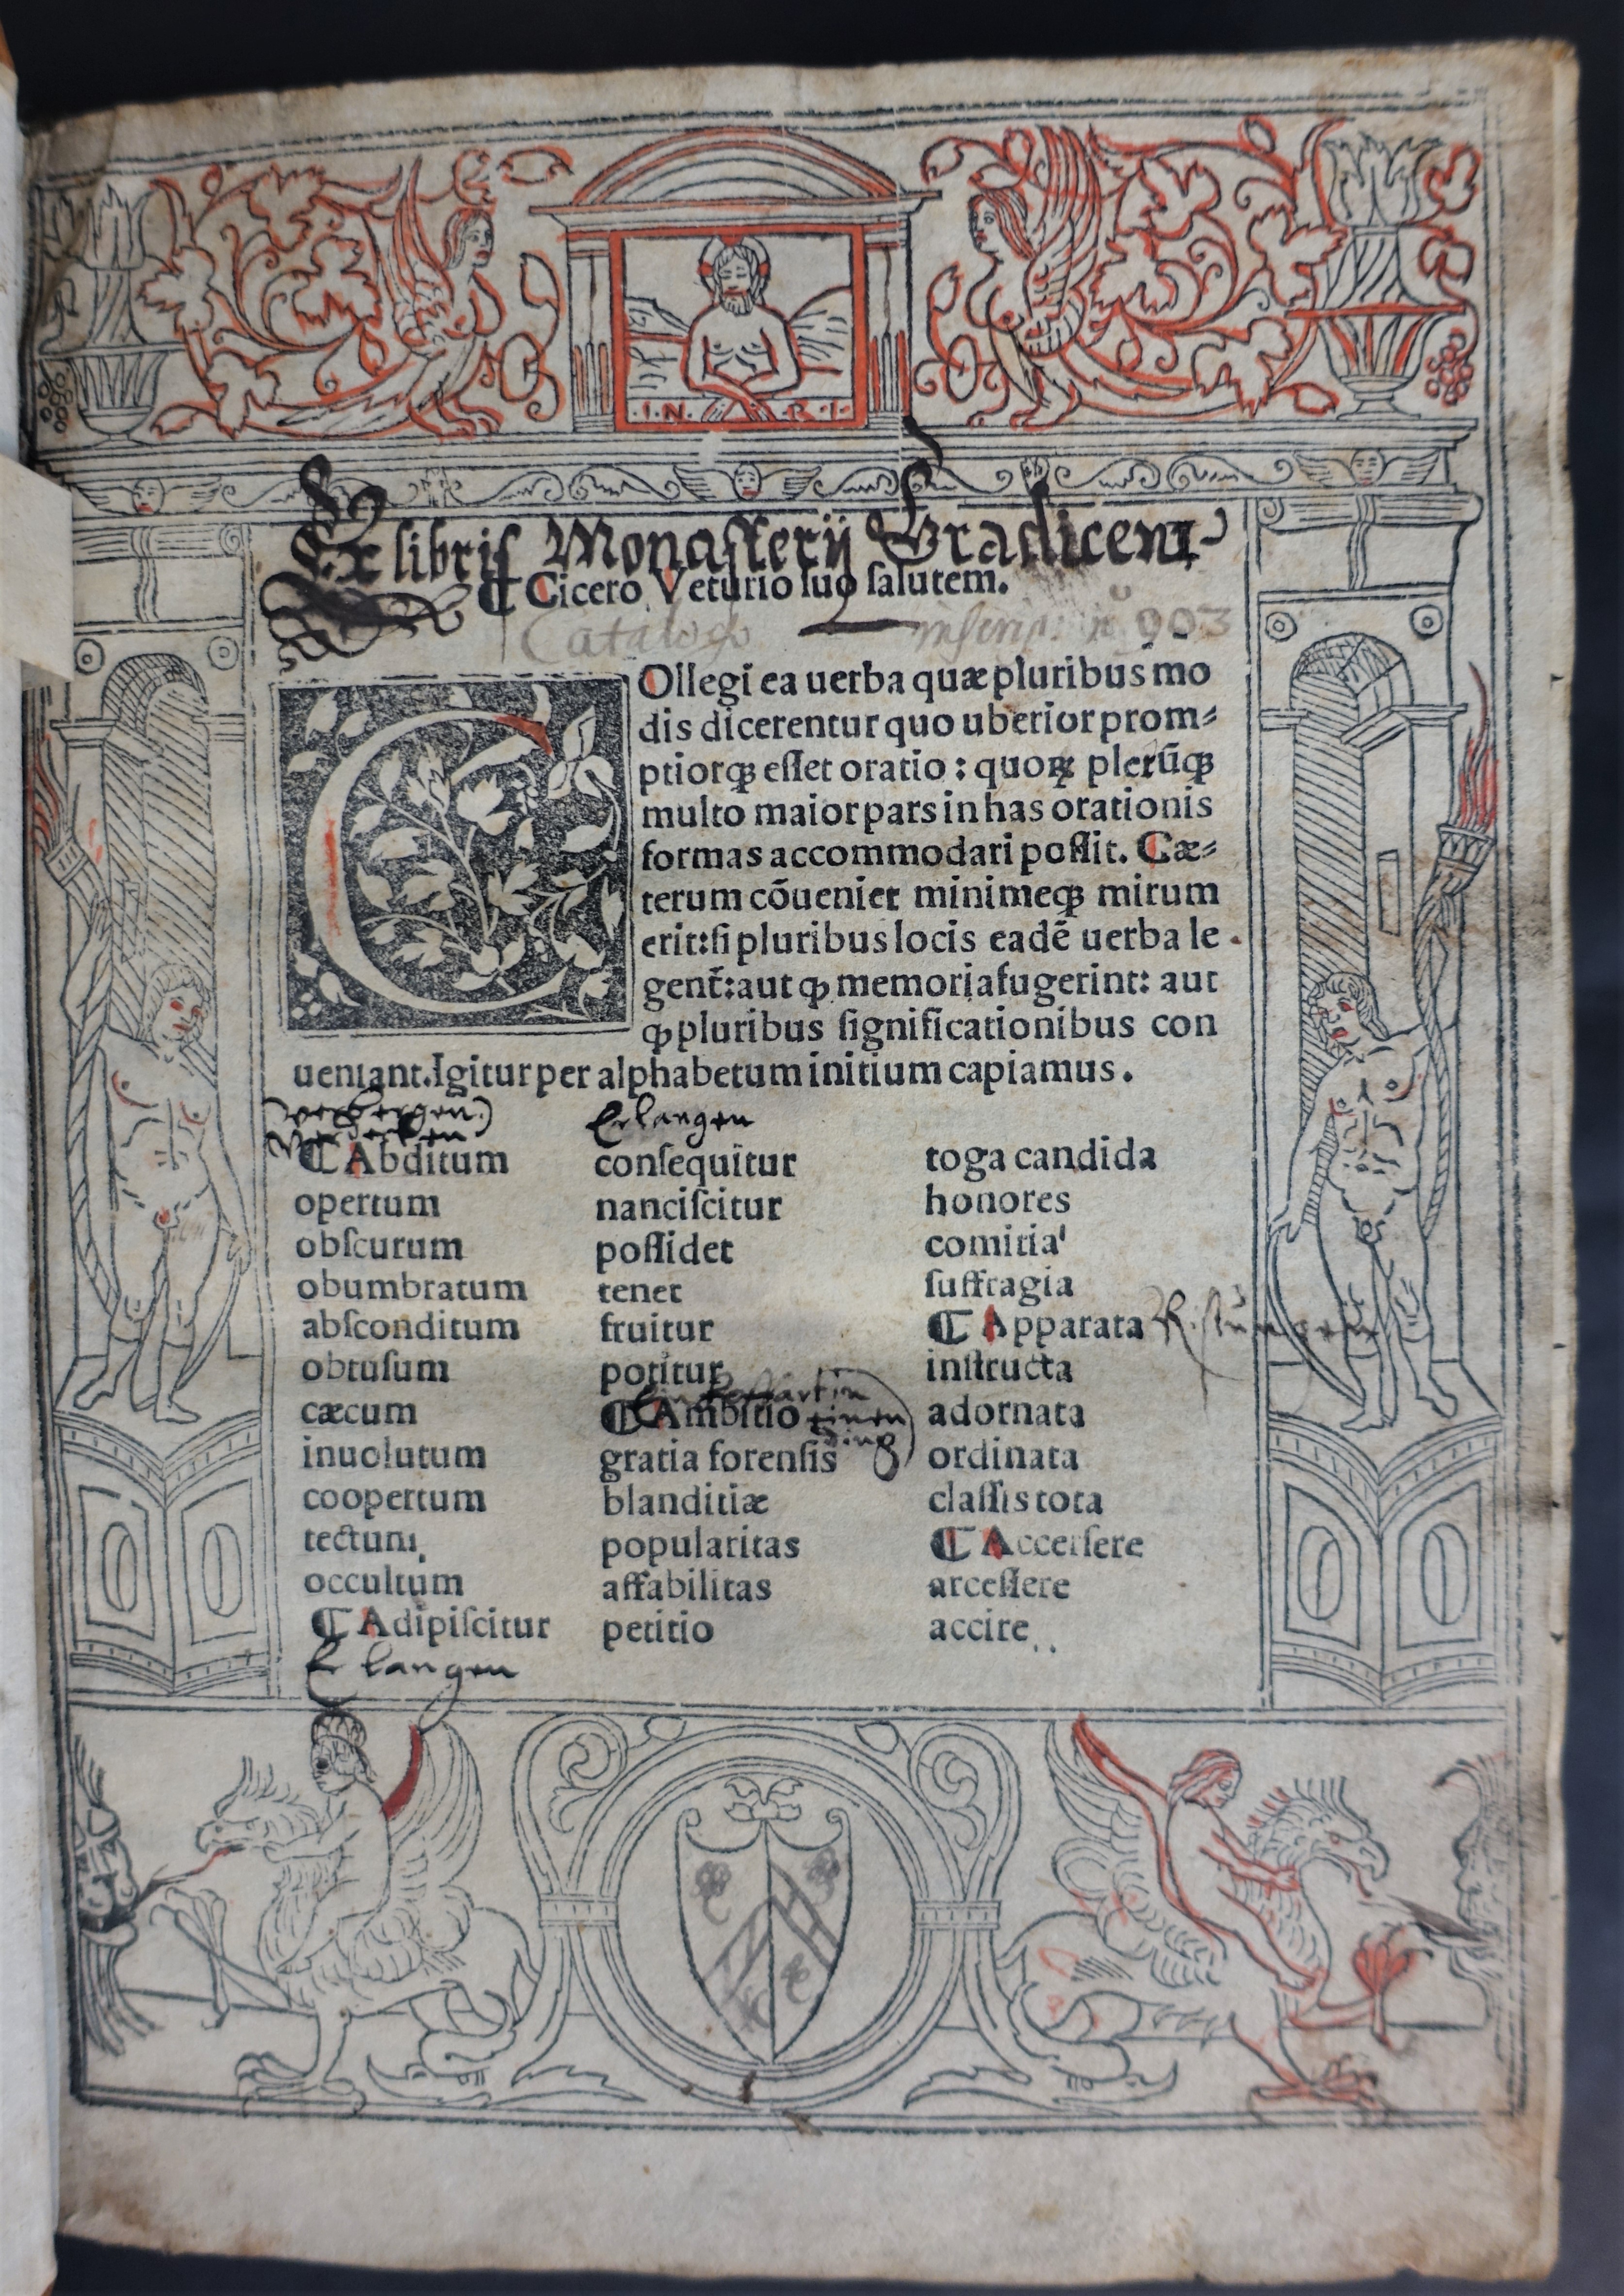 .I.N. .R.I.
Ex libris Monasterij Gradicens
¶ Cicero Veturio suo salutem.
Catalogo inscrip. nº 903
COllegi ea uerba quæ pluribus mo
dis dicerentur quo uberior prom⸗
ptiorꝙ esset oratio : quoꝝ plerūꝙ
multo maior pars in has orationis
formas accommodari possit. Cæ⸗
terum cōueniet minimeꝙ mirum
erit: si pluribus locis eadē uerba le
gent̄: aut ꝙ memoria fugerint: aut
ꝙ pluribus significationibus con
ueniant. Igitur per alphabetum initium capiamus.
verbergen Erlangen
¶ Abditum consequitur toga candida
opertum nanciscitur honores
obscurum possidet comitia
obumbratum tenet suffragia
absconditum fruitur ¶ Apparata
obtusum potitur instructa
cæcum ¶ Ambitio adornata
inuolutum gratia forensis ordinata
coopertum blanditiæ classis tota
tectum popularitas ¶ Accersere
occultum affabilitas arcessere
¶ Adipiscitur petitio accire
Erlangen